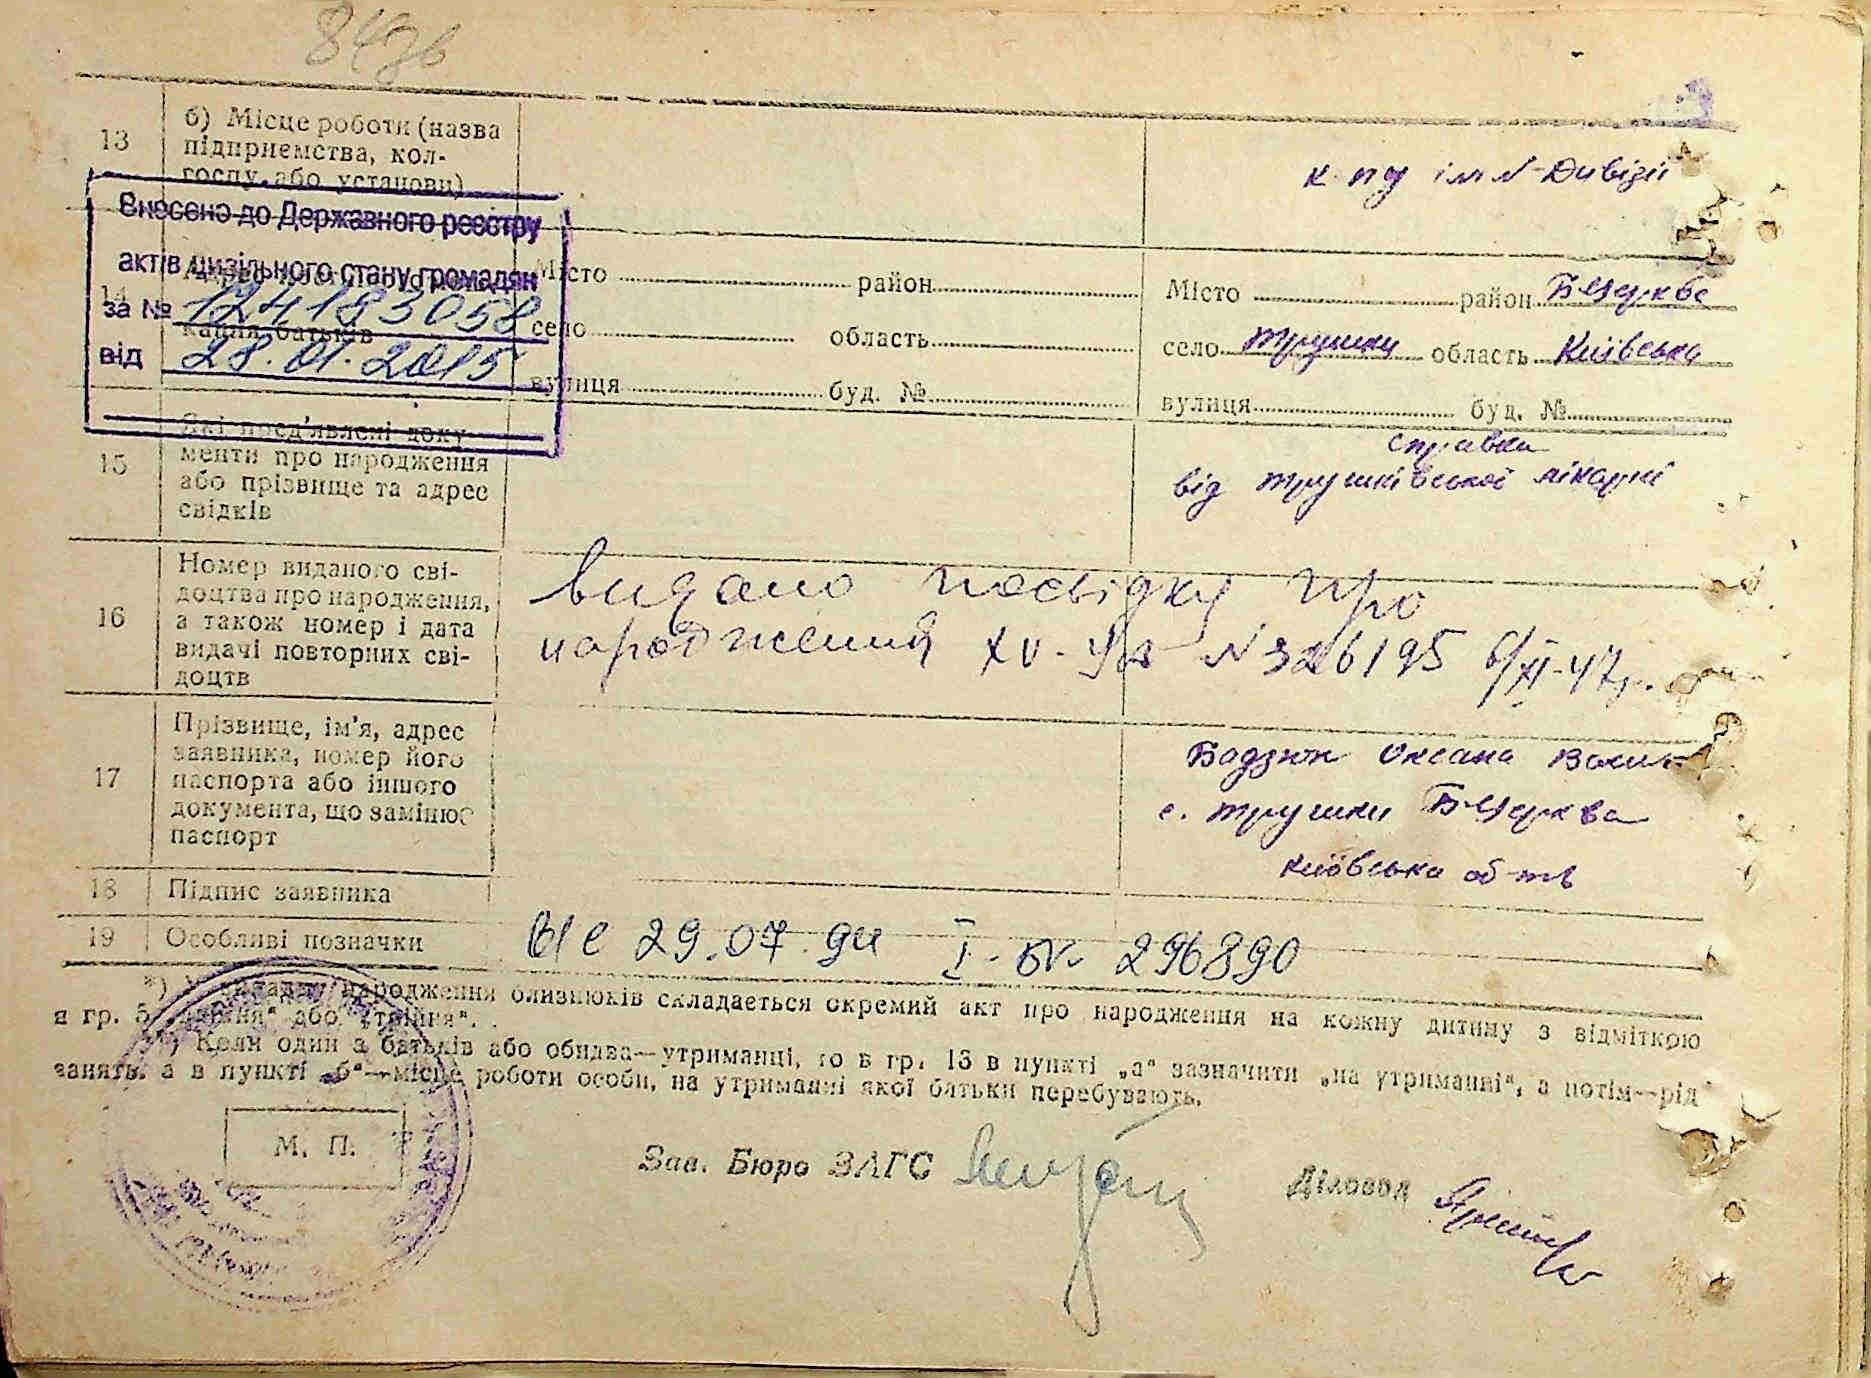 13
б) Місце роботи (назва
підприємства, кол-
госпу, або установи)
Внесено до Державного реєстру
актів цивільного стану громадян
за № 124183058
від 28.01.2015
14
кання батьків
Місто район
село область
вулиця буд. №
Місто район Б-Церква
село Трушки область Київська
вулиця буд. №
15
Які пред'явлені доку-
менти про народження
або прізвище та адрес
свідків
справка
від Трушківської лікарні
16
Номер виданого сві-
доцтва про народження,
а також номер і дата
видачі повторних сві-
доцтв
видано посвідку про
народження XV- N 326195 6/XI-47р.
17
Прізвище, ім'я, адрес
заявника, номер його
паспорта або іншого
документа, що замінює
паспорт
Бадзюн Оксана
с. Трушки Б-Церква
Київська об-ть
18 Підпис заявника
19 Особливі позначки
29.07. I- 296890
*) У випадку народження близнюків складається окремий акт про народження на кожну дитину з відміткою
в гр. 5 „двійня“ або „трійня“.
**) Коли один з батьків або обидва—утриманці, то в гр. 13 в пункті „а“ зазначити „на утриманні“, а потім—рід
занять, а в пункті „б“—місце роботи особи, на утриманні якої батьки перебувають.
М. П.
Зав. Бюро ЗАГС
Діловод